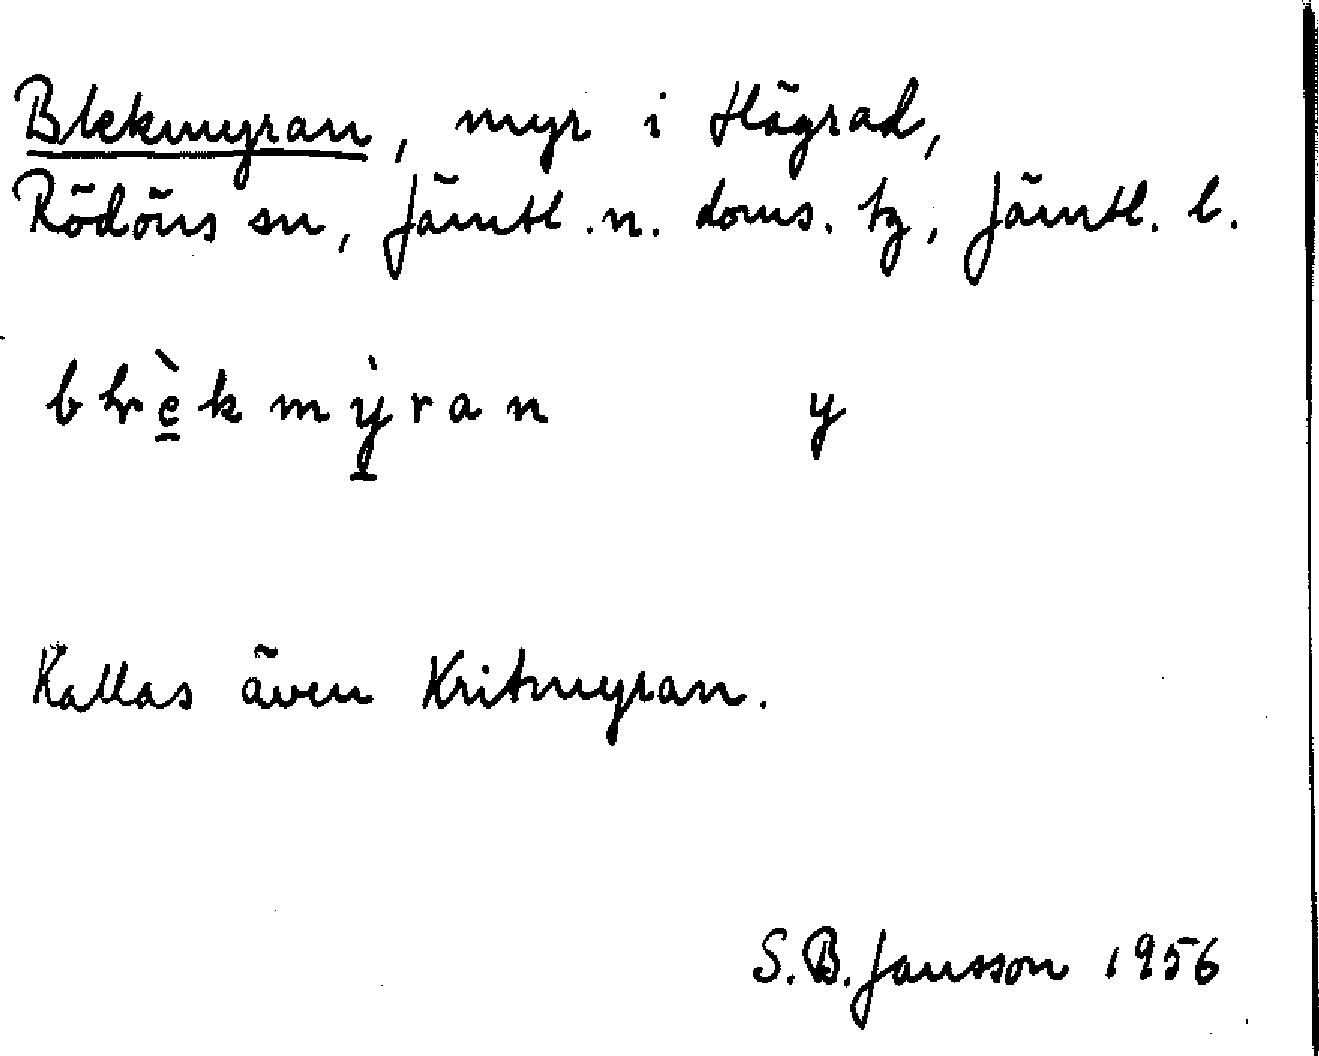 Blekmyran, myr i Högrad,
Rödöns sn, Jämtl. n. doms. tg, Jämtl. l.
y
Kallas även Kritmyran.
S.B. Jansson 1956